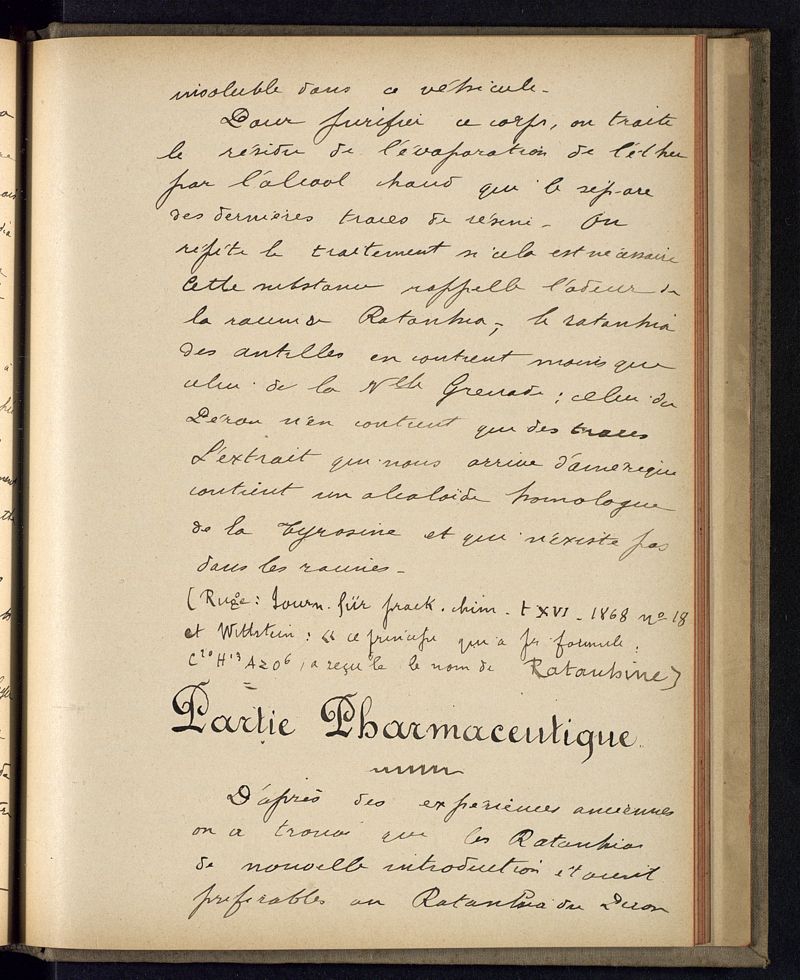 insoluble dans ce véhicule -
Pour purifier ce corps, on traite
le résidu de l'évaporation de l'éther
par l'alcool chaud qui le sépare
des dernières traces de résine - On
répète le traitement si cela est nécessaire
Cette substance rappelle l'odeur de
la racine de Ratanhia -, le ratanhia
des antilles en contient moins que
celui de la Nlle Grenade ; celui du
Pérou n'en contient que des traces
L'extrait qui nous arrive d'amérique
contient un alcaloïde homologue
de la Tyrosine et qui n'existe pas
dans les racines -
(Ruge : Journ. für prack. chim. t XVI - 1868 no 18
et Wittstein : « ce principe qui a pr formule :
C20 H13 Az O6, a reçu le nom de Ratanhine)
Partie Pharmaceutique
D'après des expériences anciennes
on a trouvé que les Ratanhias
de nouvelle introduction étaient
préférables au Ratanhia du Pérou